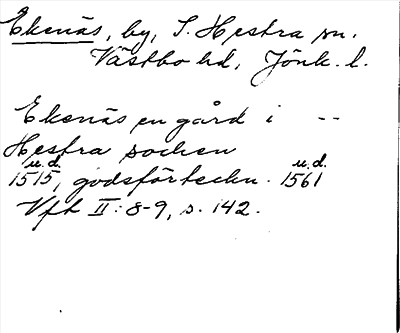 Ekenäs, by, S. Hestra sn.
Västbo hd, Jönk. l.
Ekenäs en gård i --
Hestra socken
u.d. u.d.
1515, godsförteckn. 1561
Vft II: 8-9, s. 142.